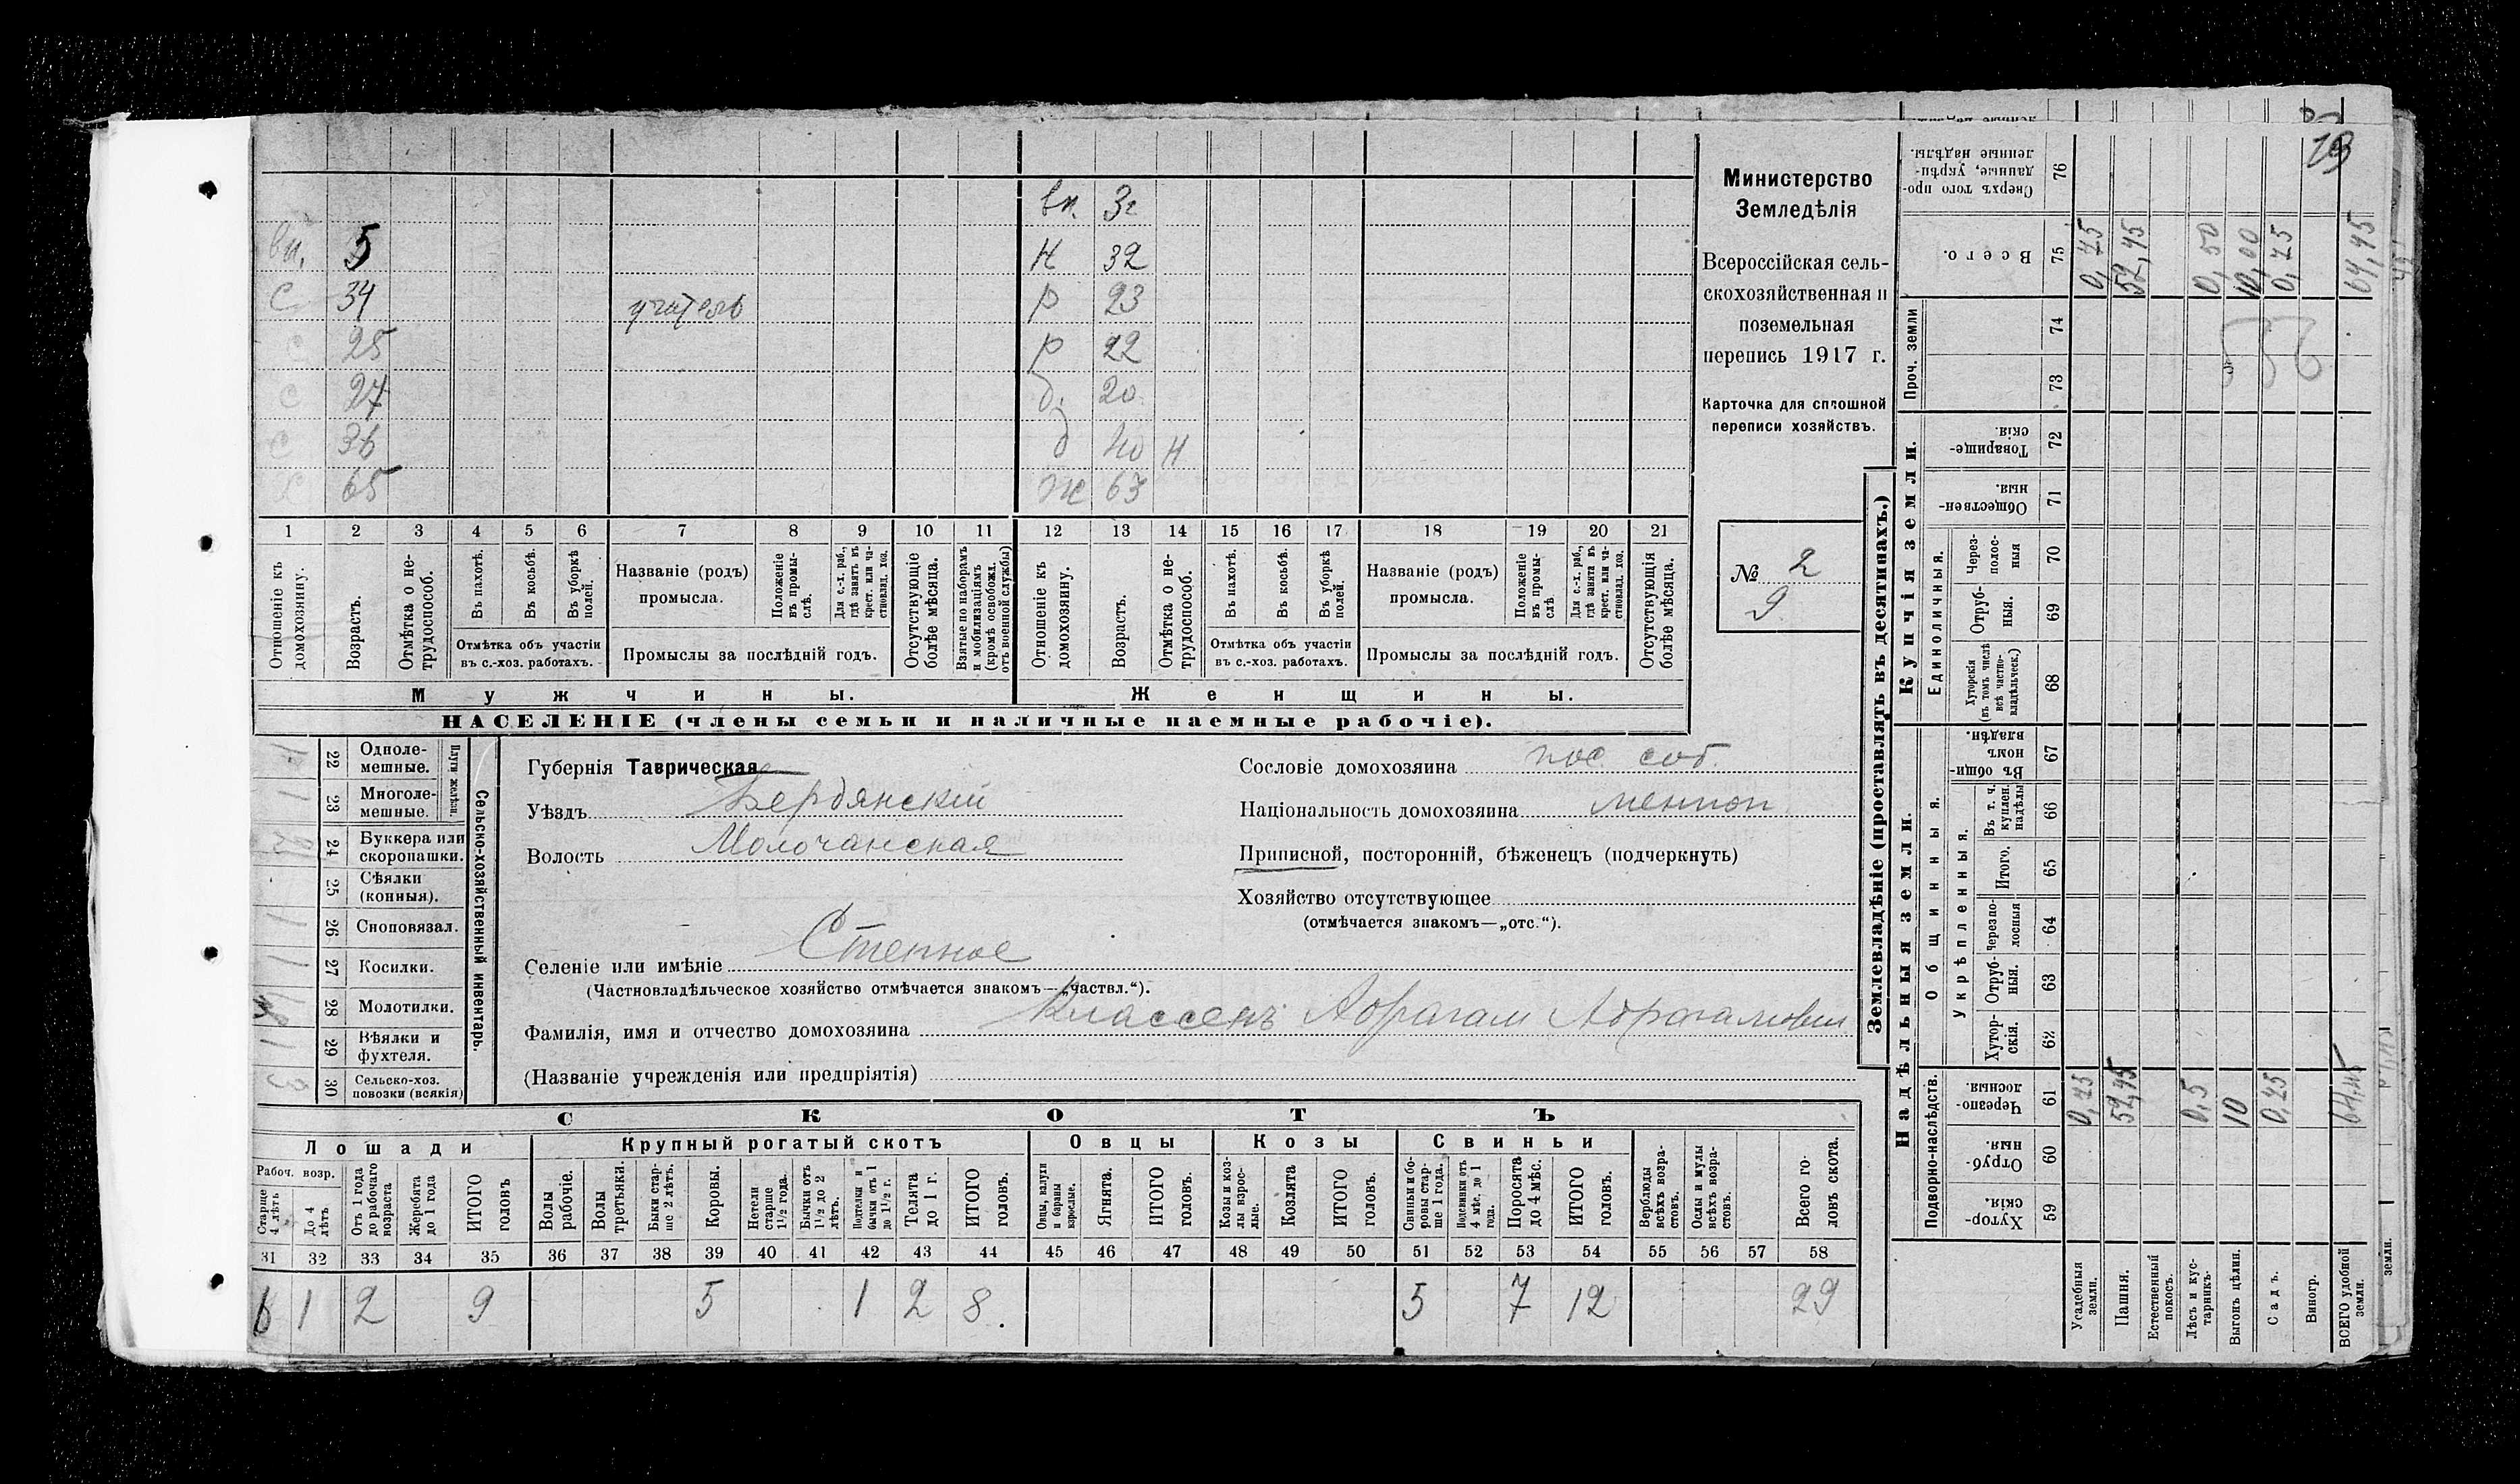 19
вн. 3г
вн. 5 Н 32
С 34 учитель р 23
С 25 р 22
С 27 д. 20
С 36 д 40 Н
Х 65 Ж 63
1 2 3 4 5 6 7 8 9 10 11 12 13 14 15 16 17 18 19 20 21
Отношеніе къ домохозяину.
Возрастъ.
Отмѣтка о не-
трудоспособ.
Въ пахотѣ.
Въ косьбѣ.
Въ уборкѣ полей.
Отмѣтка объ участіи
въ с.-хоз. работахъ.
Названіе (родъ)
промысла.
Положеніе въ промы-
слѣ.
Для с.-х. раб.,
гдѣ занятъ въ
крест. или ча-
стновлад. хоз.
Промыслы за послѣдній годъ.
Отсутствующіе
болѣе мѣсяца.
Взятые по наборамъ
и мобилизаціямъ
(кромѣ освобожд.
отъ военной службы)
Отношеніе къ
домохозяину.
Возрастъ.
Отмѣтка о не-
трудоспособ.
Въ пахотѣ.
Въ косьбѣ.
Въ уборкѣ
полей.
Отмѣтка объ участіи
въ с.-хоз. работахъ.
Названіе (родъ)
промысла.
Положеніе
въ промы-
слѣ
Для с.-х. раб.,
гдѣ занята въ
крест. или ча-
стновлад. хоз.
Промыслы за послѣдній годъ.
Отсутствующія
болѣе мѣсяца.
Мужчины. Женщины.
НАСЕЛЕНІЕ (члены семьи и наличные наемные рабочіе).
Министерство
Земледѣлія
Всероссійская сель-
скохозяйственная и
поземельная
перепись 1917 г.
Карточка для сплошной
переписи хозяйствъ.
№ 2
9
Сельско-хозяйственный инвентарь.
Плуги желѣзн.
22 Одноле-
мешные.
23 Многоле-
мешные.
24 Буккера или
скоропашки.
25 Сѣялки
(конныя).
26 Сноповязал.
27 Косилки.
28 Молотилки.
29 Вѣялки и
фухтеля.
30 Сельско-хоз.
повозки (всякія)
Губернія Таврическая
Уѣздъ Бердянскій
Волость Молочанская
Селеніе или имѣніе Степное
(Частновладѣльческое хозяйство отмѣчается знакомъ—„частвл.“).
Фамилія, имя и отчество домохозяина Классенъ Абрагам Абрагамович
(Названіе учрежденія или предпріятія)
Сословіе домохозяина пос соб.
Національность домохозяина меннон
Приписной, посторонній, бѣженецъ (подчеркнуть)
Хозяйство отсутствующее
(отмѣчается знакомъ—„отс.“).
СКОТЪ
Лошади Крупный рогатый скотъ Овцы Козы Свиньи
Рабоч. возр.
Старше
4 лѣтъ
До 4
лѣтъ
Отъ 1 года
до рабочаго
возраста
Жеребята
до 1 года
ИТОГО
головъ
Волы
рабочіе.
Волы
третьяки.
Быки стар-
ше 2 лѣтъ.
Коровы.
Нетели
старше
1½ года.
Бычки отъ
1½ до 2
лѣтъ.
Подтелки и
бычки отъ 1
до 1½ г.
Телята
до 1 г.
ИТОГО
головъ.
Овцы, валухи
и бараны
взрослые.
Ягнята.
ИТОГО
головъ.
Козы и коз-
лы взрос-
лые.
Козлята
ИТОГО
головъ.
Свиньи и бо-
ровы стар-
ше 1 года.
Подсвинки отъ
4 мѣс. до 1
года.
Поросята
до 4 мѣс.
ИТОГО
головъ.
Верблюды
всѣхъ возра-
стовъ.
Ослы и мулы
всѣхъ возра-
стовъ.
Всего го-
ловъ скота.
31 32 33 34 35 36 37 38 39 40 41 42 43 44 45 46 47 48 49 50 51 52 53 54 55 56 57 58
6 1 2 9 5 1 2 8. 5 7 12 29
Землевладѣніе (проставлять въ десятинахъ.)
Надѣльныя земли. Купчія земли.
Проч. земли
Подворно-наслѣдств.
Общинныя.
Укрѣпленныя.
Единоличныя.
Хутор-
скія.
59
Отруб-
ныя.
60
Черезпо-
лосныя.
61
Хутор-
скія.
62
Отруб-
ныя.
63
Черезпо-
лосныя
64
Итого.
65
Въ т. ч.
куплен.
надѣлы
66
Въ общи-
номъ
владѣн.
67
Хуторскія
(въ томъ числѣ
всѣ частно-
владѣльческ.)
68
Отруб-
ныя.
69
Через-
полос-
ныя
70
Обществен-
ныя.
71
Товарище-
скія.
72
73
74
Всего.
75
Сверхъ того про-
данные, укрѣп-
ленные надѣлы.
76
Усадебныя
земли.
0,75 0,75
Пашня.
52,95 52,95
Естественный
покосъ.
Лѣсъ и кус-
тарникъ.
0,5 0,50
Выгонъ цѣлин.
10 10,00
Садъ.
0,25 0,25
Виногр.
ВСЕГО удобной
земли.
64,45 64,45
556
земли.